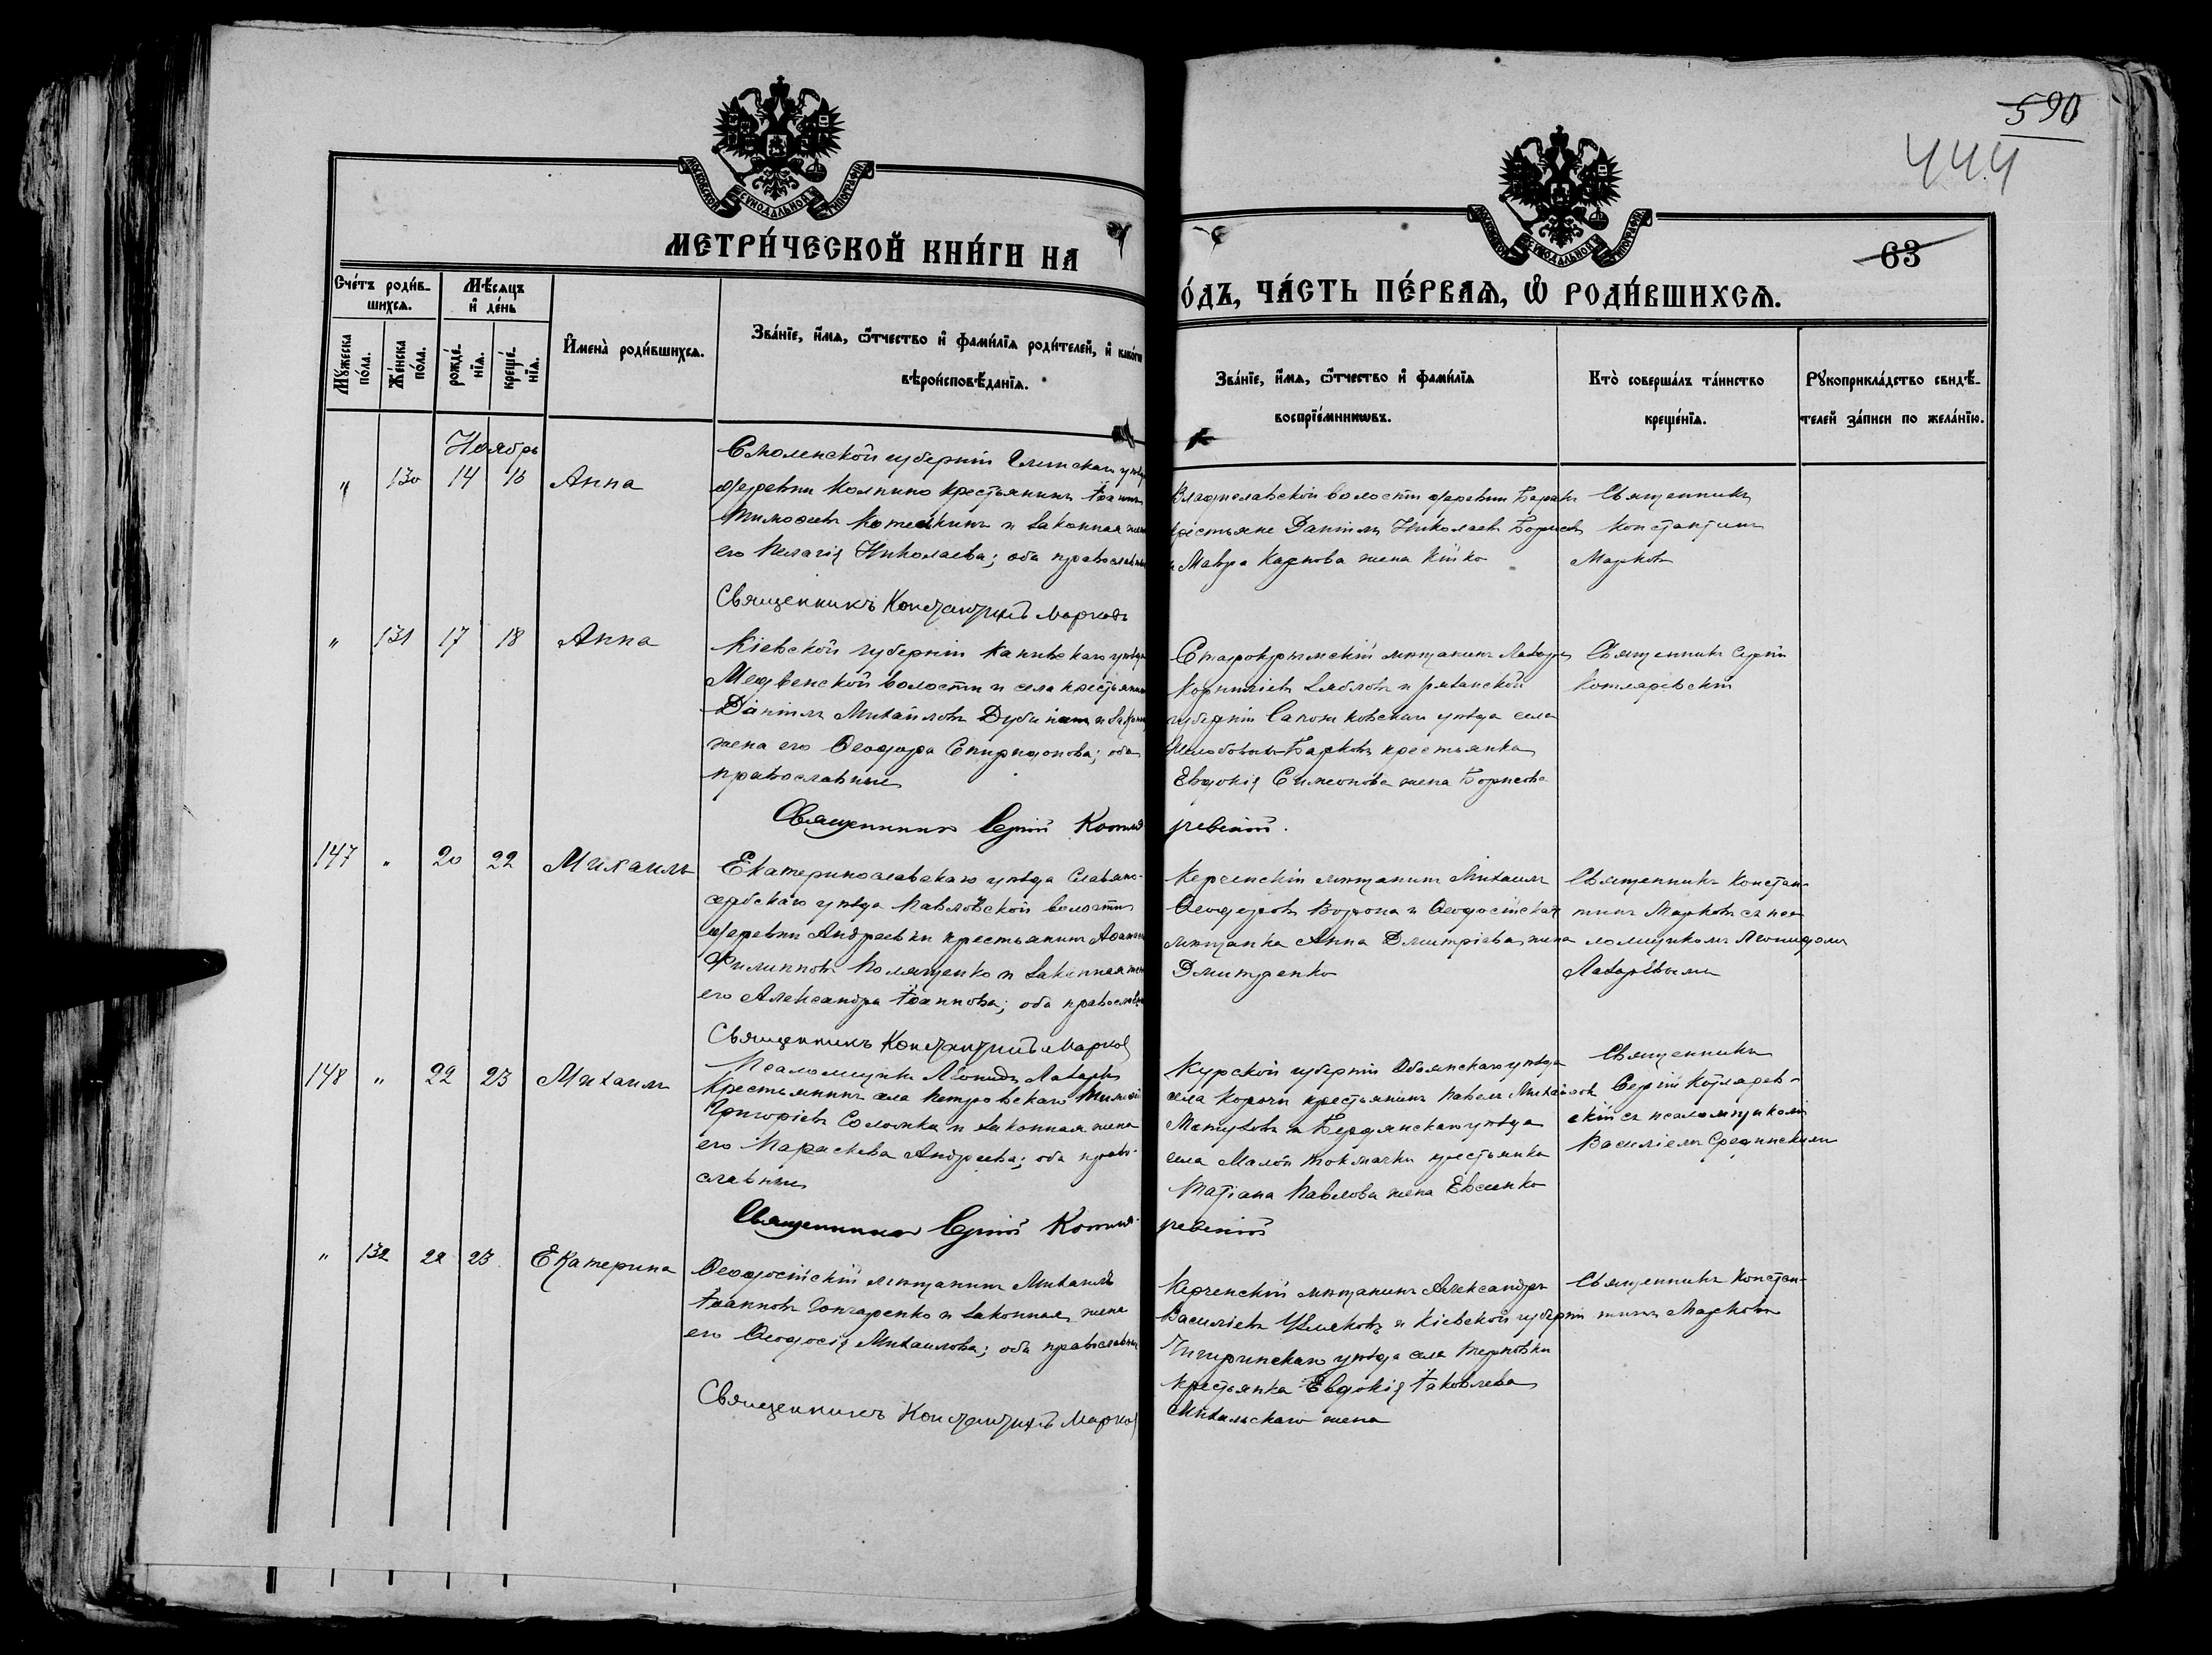 590
444
63
МОСКОВСКОЙ СѴНОДАЛЬНОЙ ТИПОГРАФІИ
МОСКОВСКОЙ СѴНОДАЛЬНОЙ ТИПОГРАФІИ
МЕТРИ́ЧЕСКОЙ КНИ́ГИ НА
О́ДЪ, ЧА́СТЬ ПЕ́РВАЯ, Ѡ РОДИ́ВШИХСЯ.
Сче́тъ роди́в-
шихся.
Мѣ́сяцъ
и де́нь
Мꙋжеска по́ла.
Же́нска по́ла.
рожде́-
нїя.
креще́-
нїя.
Имена̀ роди́вшихся.
Зва́нїе, и́мя, ѻ́тчество и фами́лїя роди́телей, и како́гѡ
вѣроисповѣ́данїя.
Зва́нїе, и́мя, ѻ́тчество и фами́лїя
воспрїе́мникѡвъ.
Кто̀ соверша́лъ та́инство
креще́нїя.
Рꙋкоприкла́дство свидѣ́-
телей за́писи по жела́нїю.
Ноябрь
" 130 14 16 Анна
Смоленской губерніи Ельнскаго уѣзда
деревни Колпино крестьянинъ Іоаннъ
Тимоѳеевъ Котелкинъ и законная жена
его Пелагія Николаева; оба православные
Священникъ Константинъ Марковъ
Владиславской волости деревни Баракъ
крестьяне Даніилъ Николаевъ Борисовъ
и Мавра Карпова жена Кійко
Священникъ
Константинъ
Марковъ
" 131 17 18 Анна
Кіевской губерніи Каневскаго уѣзда
Медвенской волости и села крестьянинъ
Даніилъ Михайловъ Дубина и законная
жена его Ѳеодора Спиридонова; оба
православные
Священникъ Сергій Котля
ревскій.
Старокрымскій мѣщанинъ Лазарь
Корниліевъ Зябловъ и рязанской
губерніи Сапожковскаго уѣзда села
Желобовы-Барковъ крестьянка
Евдокія Симеонова жена Борисова
Священникъ Сергій
Котляревскій
147 " 20 22 Михаилъ
Екатеринославскаго уѣзда Славяно-
сербскаго уѣзда Павловской волости
деревни Андреевки крестьянинъ
Филипповъ Полященко и законная жена
его Александра Іоаннова; оба православные
Священникъ Константинъ Марковъ
Псаломщикъ Леонидъ Лазаревъ
Керченскій мѣщанинъ Михаилъ
Ѳеодоровъ Ворона и Ѳеодосійская
мѣщанка Анна Дмитріева жена
Дмитренко
Священникъ Констан-
тинъ Марковъ съ пса-
ломщикомъ Леонидомъ
Лазаревымъ
148 " 22 23 Михаилъ
Крестьянинъ села Петровскаго Тимоѳей
Григоріевъ Соломка и законная жена
его Параскева Андреева; оба право-
славные
Священникъ Сергій Котля-
ревскій
Курской губерніи Обоянскаго уѣзда
села Корочи крестьянинъ Павелъ Михайловъ
Матузовъ и Бердянскаго уѣзда
села Малой Токмачки крестьянка
Татіана Павлова жена Евсенко
Священникъ
Сергій Котлярев-
скій съ псаломщикомъ
Василіемъ Срединскимъ
" 132 22 23 Екатерина
Ѳеодосійскій мѣщанинъ Михаилъ
Іоанновъ Гончаренко и законная жена
его Ѳеодосія Михаилова; оба православные
Священникъ Константинъ Марковъ
Керченскій мѣщанинъ Александръ
Василіевъ и Кіевской губерніи
Чигиринскаго уѣзда села Терновки
крестьянка Евдокія Іаковлева
Михальскаго жена
Священникъ Констан-
тинъ Марковъ